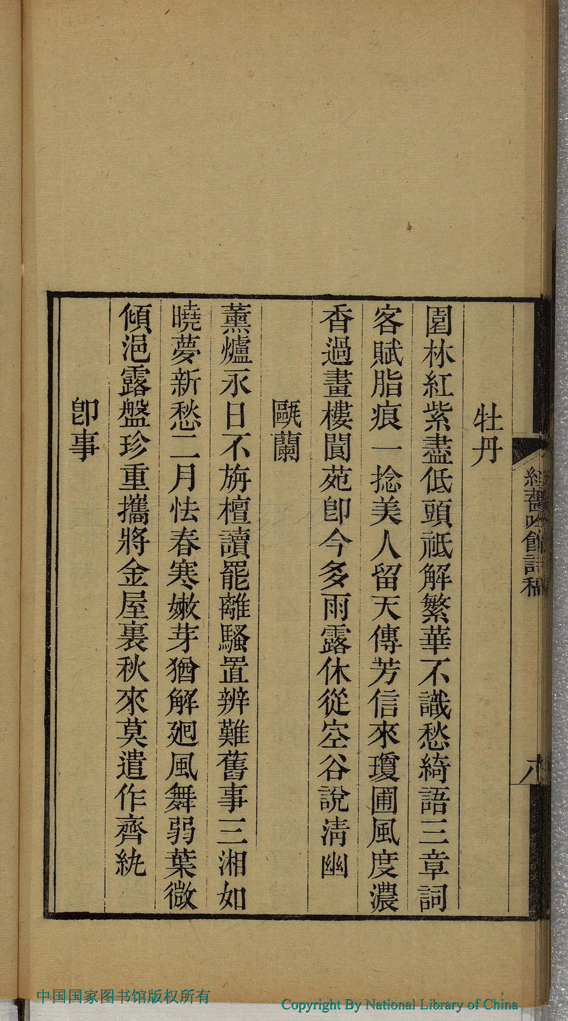 紅薔吟館詩稿
牡丹
園林紅紫盡低頭祗解繁華不識愁綺語三章詞
客賦脂痕一捻美人留天傳芳信來瓊圃風度濃
香過畫樓閬苑卽今多雨露休從空谷說淸幽
甌蘭
薰爐永日不旃檀讀罷離騷置辨難舊事三湘如
曉夢新愁二月怯春寒嫩芽猶解廻風舞弱葉微
傾浥露盤珍重攜將金屋裏秋來莫遣作齊紈
卽事
中国国家图书馆版权所有
Copyright By National Library of China